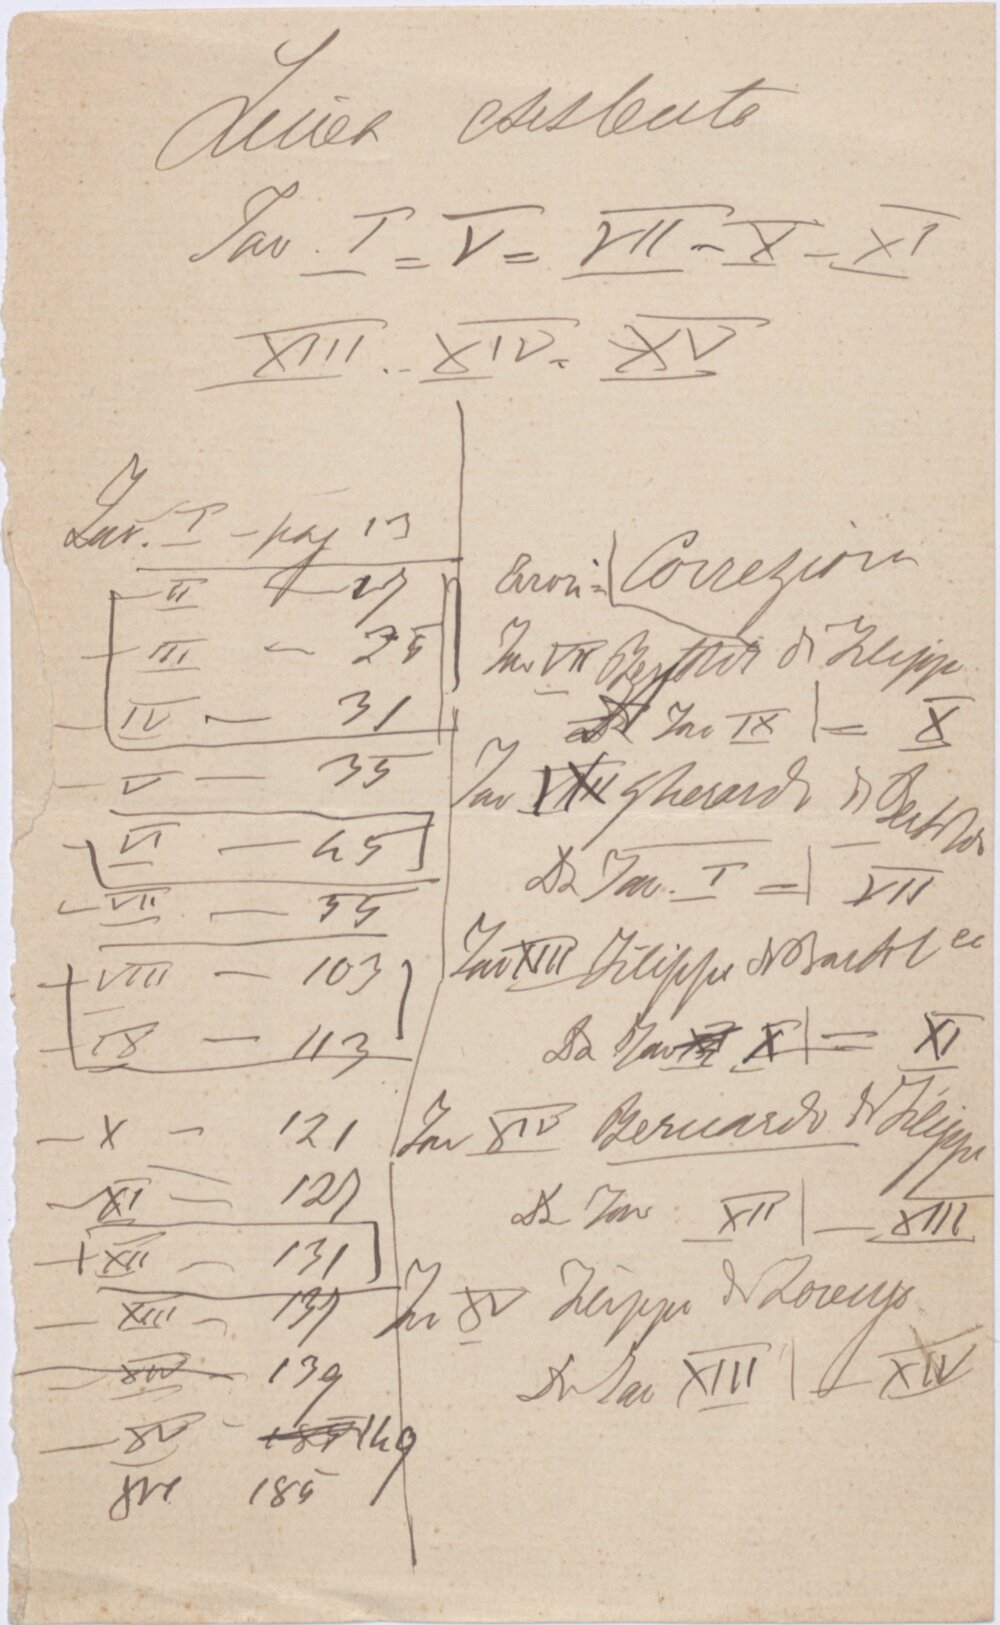 Linea esistente
Tav. I = V = VII - X - XI
XIII .. XIV = XV
Tav. I - pag 13
II - 17
III - 25
IV - 31
V - 35
VI - 45
VII - 55
VIII - 103
IX - 113
X - 121
XI - 127
XII - 131
XIII - 137
XIV - 139
XV - 149
XVI 185
Errori = Correzioni
Tav VII Bertoldo di Filippo
Da Tav IX | = X
Tav VIII Gherardo di Bertoldo
Da Tav. I = | VII
Tav XIII Filippo di Bartol eo
Da Tav X | = XI
Tav XIV Bernardo di Filippo
Da Tav XII | - XIII
Tav XV Filippo di Lorenzo
Da Tav XIII | - XIV